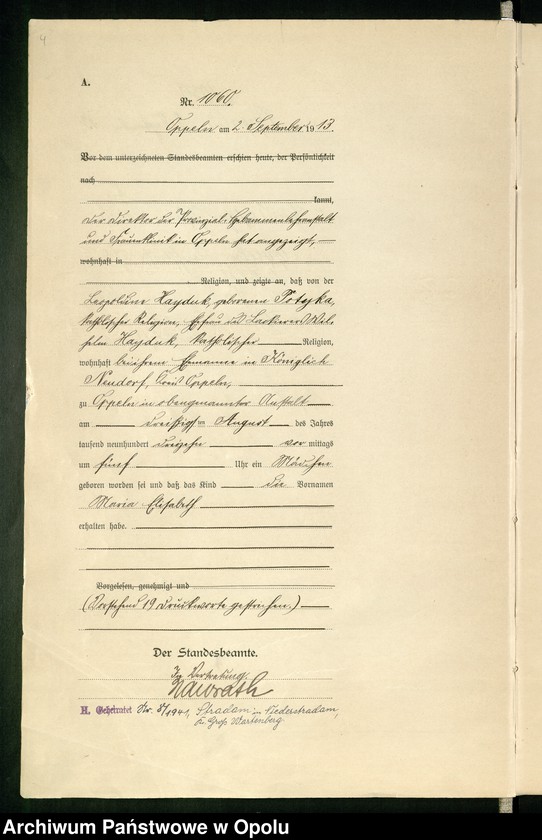 4
A.
Nr. 1060.
Oppeln am 2. September 1913.
Vor dem unterzeichneten Standesbeamten erschien heute, der Persönlichkeit
nach
kannt,
der Direktor der Provinzial-Hebammenlehranstalt
und Frauenklinik in Oppeln hat angezeigt,
wohnhaft in
Religion, und zeigte an, daß von der
Leopoldine Hayduk, geborenen Potyka,
katholischer Religion, Ehefrau des Lackierers Wil-
helm Hayduk, katholischer Religion,
wohnhaft bei ihrem Ehemanne in Königlich
Neudorf, Kreis Oppeln,
zu Oppeln in obengenannter Anstalt
am dreißigsten August des Jahres
tausend neunhundert dreizehn vor mittags
um fünf Uhr ein Mädchen
geboren worden sei und daß das Kind die Vornamen
Maria Elisabeth
erhalten habe.
Vorgelesen, genehmigt und
(Vorstehend 19 Druckworte gestrichen.)
Der Standesbeamte.
In Vertretung.
Nawrath
H. Geheiratet Nr. 5/1941, Stradam in Niederstradam,
Kr. Groß Wartenberg
Archiwum Państwowe w Opolu